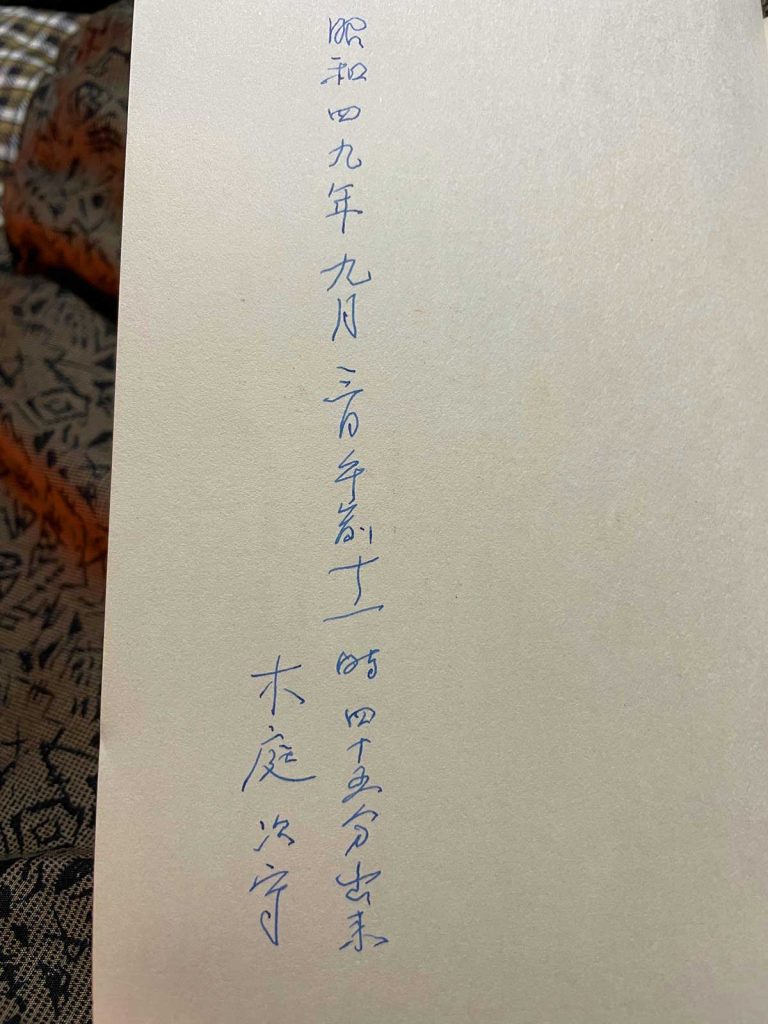 昭和四九年九月三日午前十一時四十五分出来
木庭次守